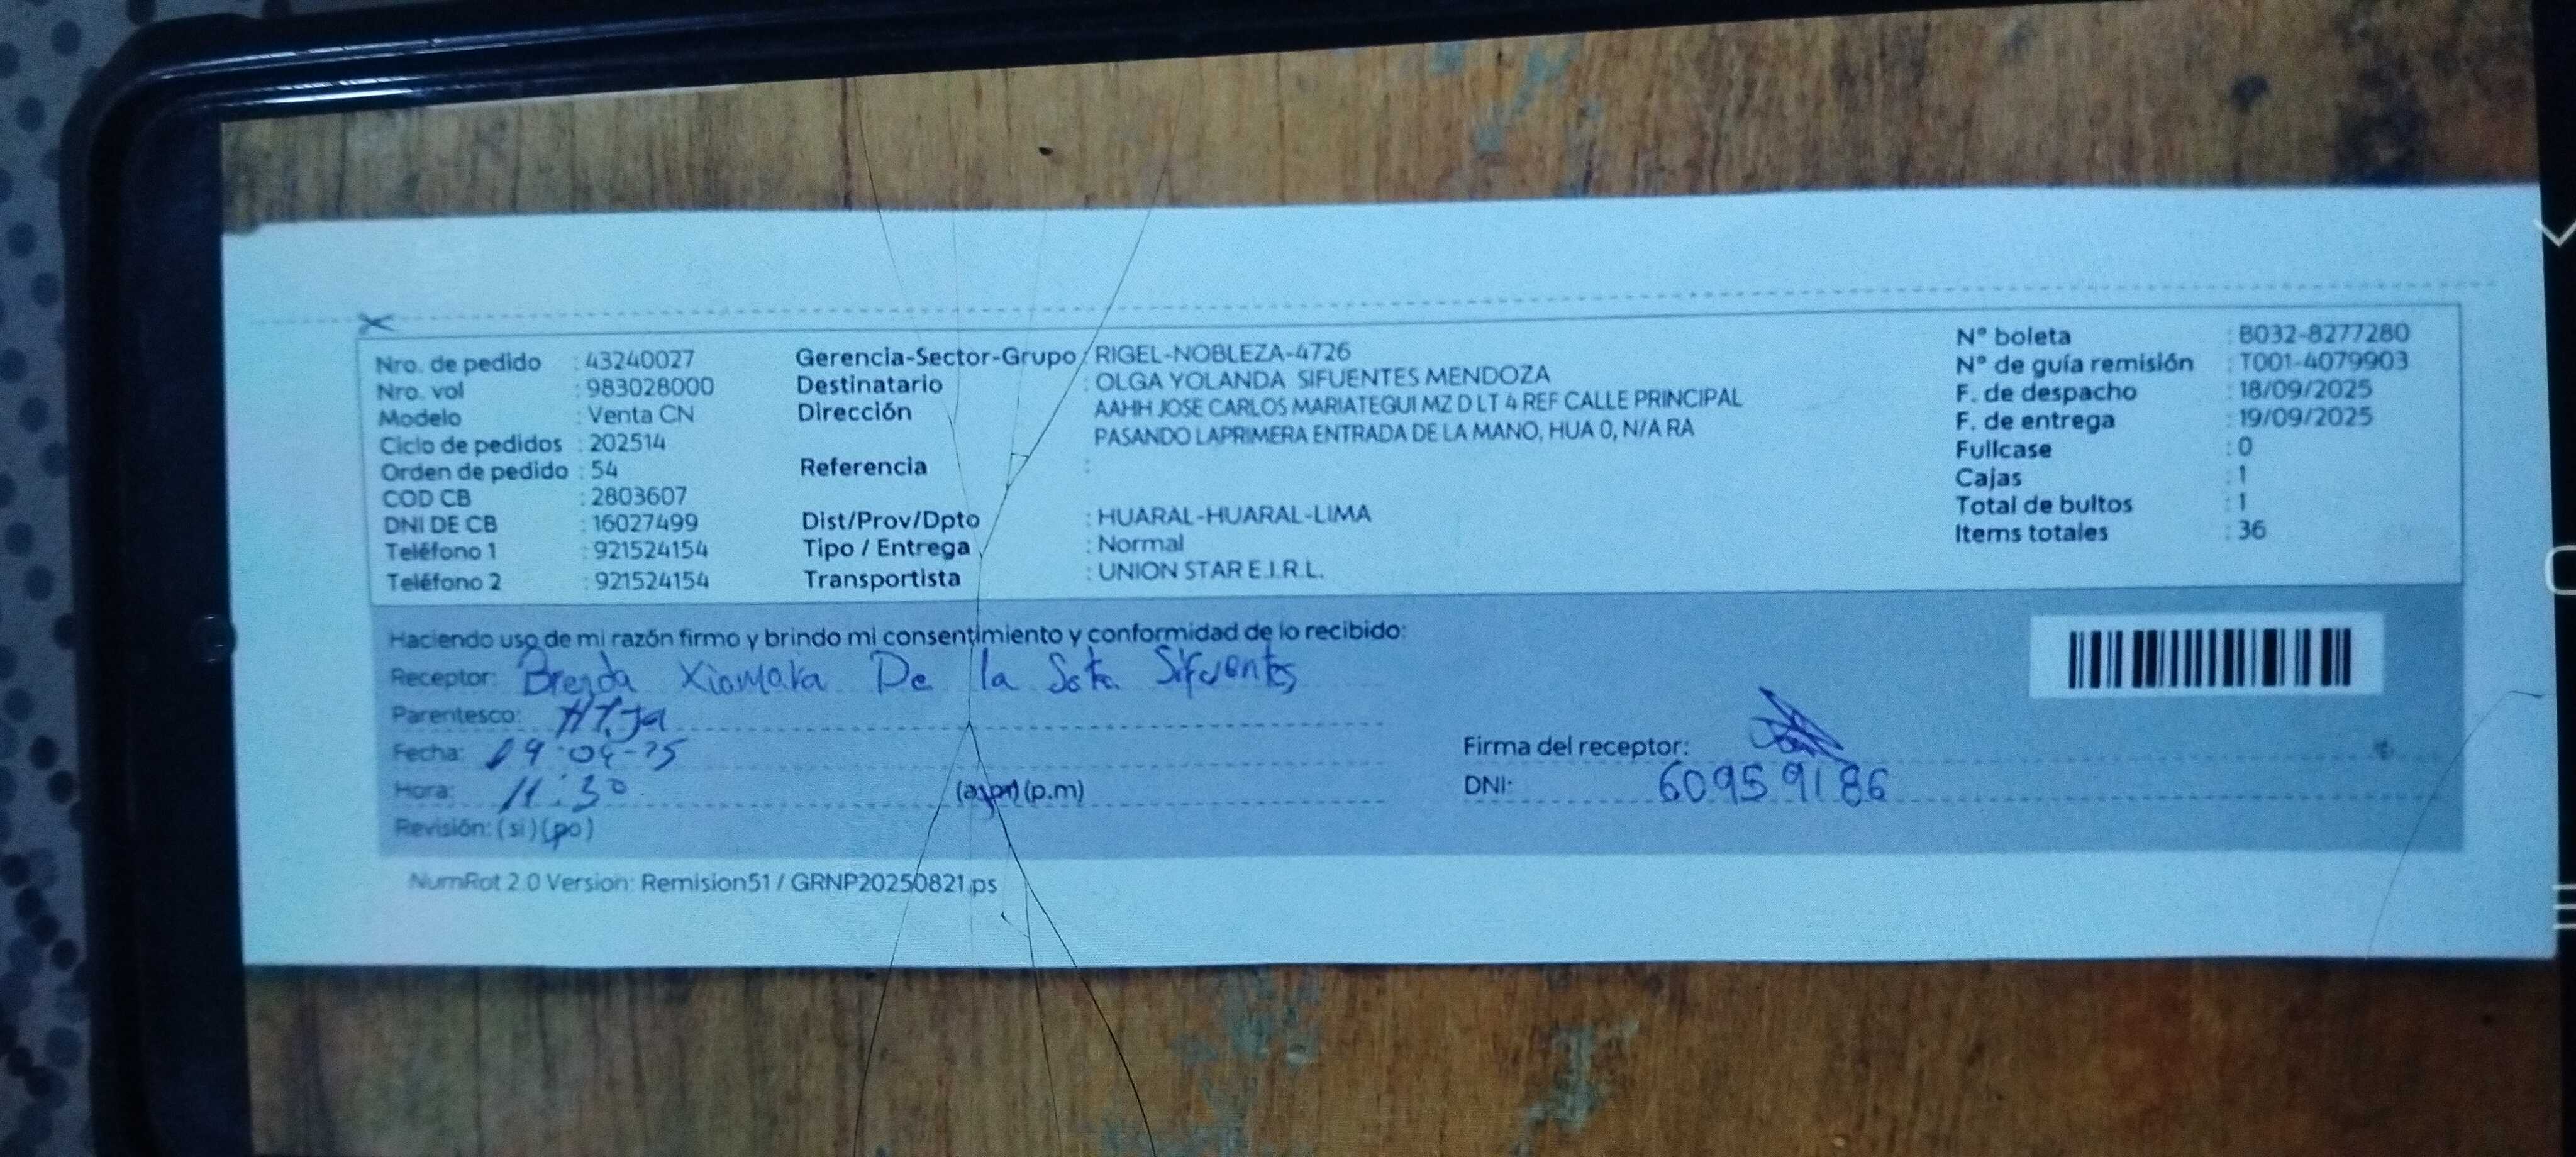 Nro. de pedido : 43240027
Nro. vol : 983028000
Modelo : Venta CN
Ciclo de pedidos : 202514
Orden de pedido : 54
COD CB : 2803607
DNI DE CB : 16027499
Teléfono 1 : 921524154
Teléfono 2 : 921524154
Gerencia-Sector-Grupo : RIGEL-NOBLEZA-4726
Destinatario : OLGA YOLANDA SIFUENTES MENDOZA
Dirección AAHH JOSE CARLOS MARIATEGUI MZ D LT 4 REF CALLE PRINCIPAL
PASANDO LAPRIMERA ENTRADA DE LA MANO, HUA 0, N/A RA
Referencia :
Dist/Prov/Dpto : HUARAL-HUARAL-LIMA
Tipo / Entrega : Normal
Transportista : UNION STAR E.I.R.L.
N° boleta : B032-8277280
N° de guía remisión : T001-4079903
F. de despacho : 18/09/2025
F. de entrega : 19/09/2025
Fullcase : 0
Cajas : 1
Total de bultos : 1
Items totales : 36
Haciendo uso de mi razón firmo y brindo mi consentimiento y conformidad de lo recibido:
Receptor: Brenda Xiomara De la Sota Sifuentes
Parentesco: Hija
Fecha:
Hora: 11:30 (a.m) (p.m)
Revisión: (si) (no)
Firma del receptor:
DNI: 60959186
NumRot 2.0 Version: Remision51 / GRNP20250821.ps